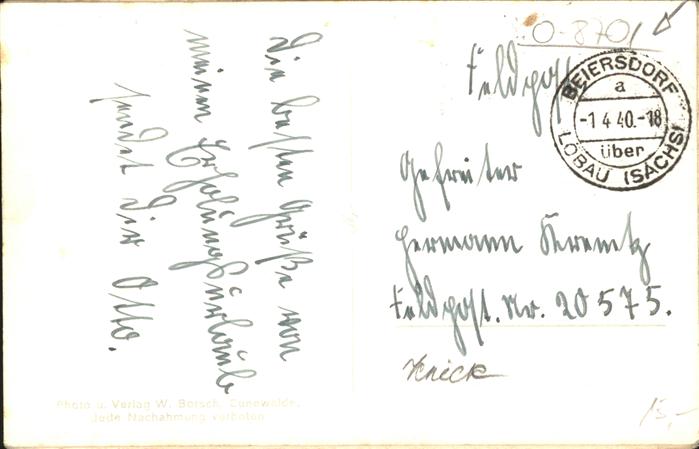 Die besten Grüße von
meinem Erholungsurlaub
sendet Dir Otto.
O-8701
Feldpost
BEIERSDORF
a
-1 4 40.-18
über
LÖBAU (SACHS)
Gefreiter
Hermann
Feldpost. Nr. 20575.
Knick
15,-
Photo u. Verlag W. Borsch, Cunewalde.
Jede Nachahmung verboten